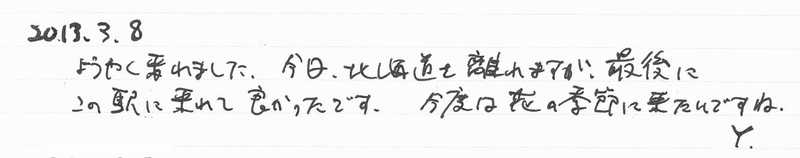 2013.3.8
ようやく来れました。今日、北海道を離れますが、最後に
この駅に来れて良かったです。 今度は花の季節に来たいですね。
Y.